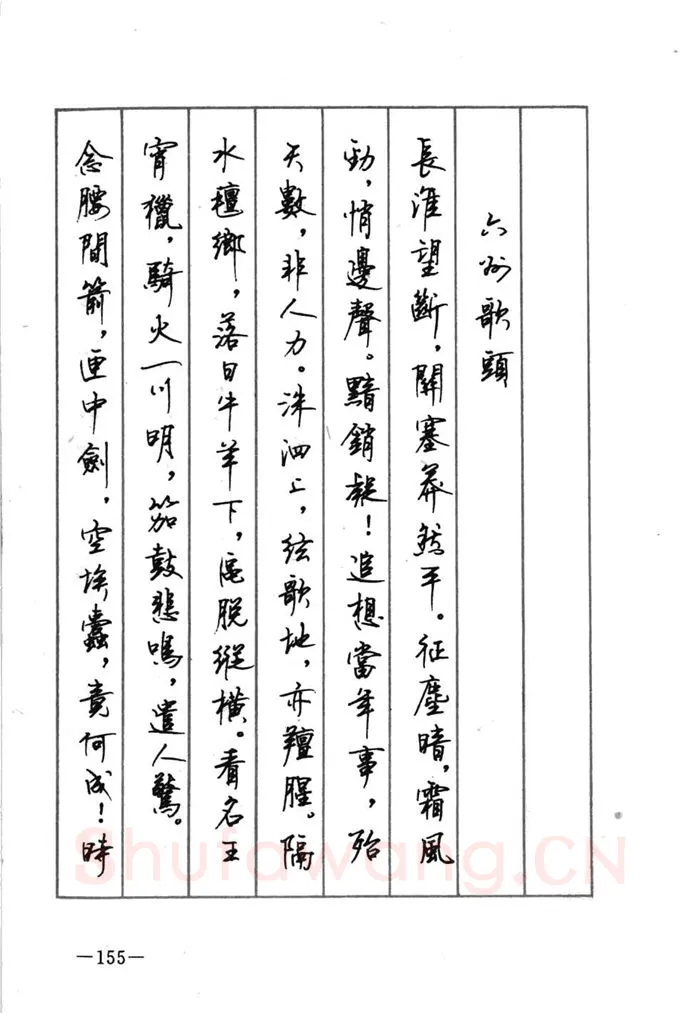 六州歌頭
長淮望斷，關塞莽然平。征塵暗，霜風
勁，悄邊聲。黯銷凝！追想當年事，殆
天數，非人力。洙泗上，絃歌地，亦羶腥。隔
水氈鄉，落日牛羊下，區脱縱橫。看名王
宵獵，騎火一川明，笳鼓悲鳴，遣人驚。
念腰間箭，匣中劍，空埃蠹，竟何成！時
Shufawang.CN
—155—